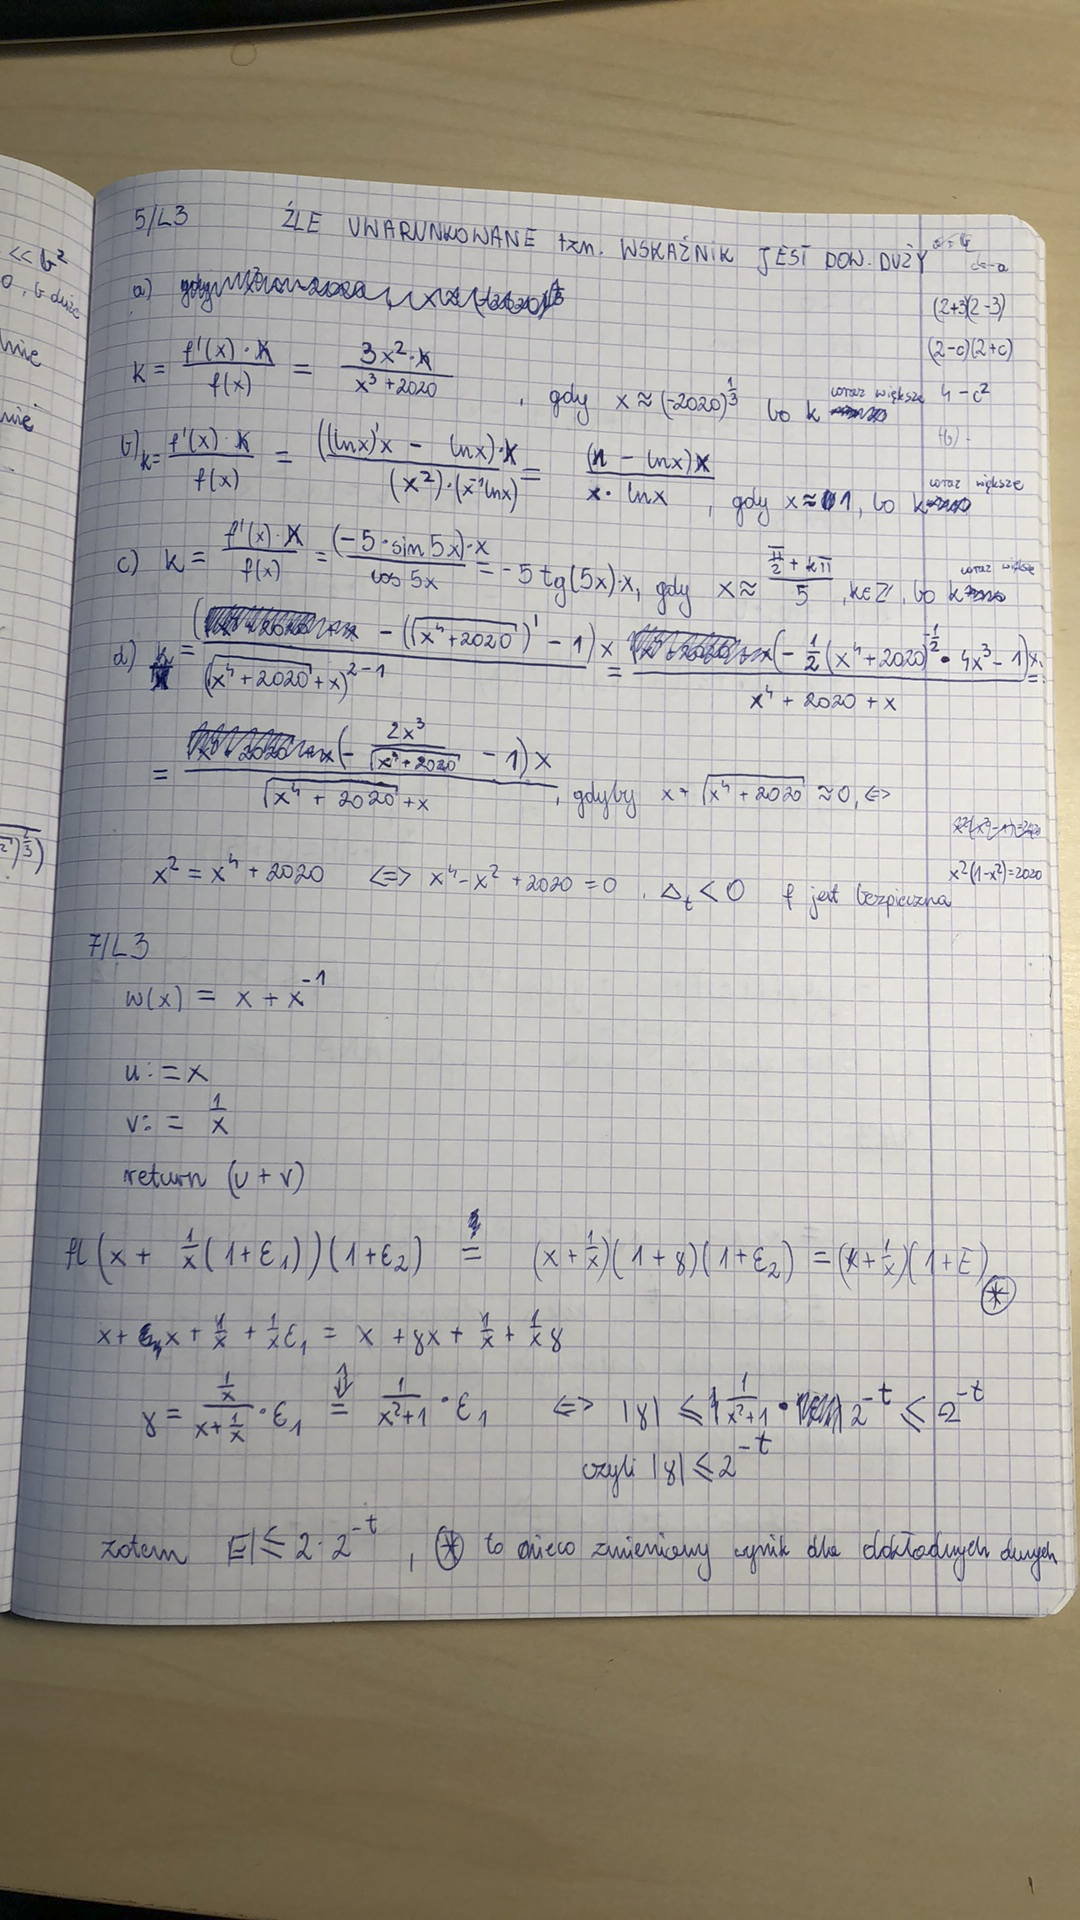 << b²
0, b duże
5/L3 ŹLE UWARUNKOWANE tzn. WSKAŹNIK JEST DOW. DUŻY
a)
(2+3)(2-3)
(2-c)(2+c)
4-c²
k = f'(x)·x / f(x) = 3x²·x / (x³+2020) , gdy x ≈ (-2020)^(1/3) bo k coraz większe
b) k = f'(x)·x / f(x) = ((lnx)'x - lnx)·x / (x²)·(x⁻¹lnx) = (1 - lnx)x / x·lnx , gdy x ≈ 1, bo k coraz większe
c) k = f'(x)·x / f(x) = (-5·sin5x)·x / cos5x = -5tg(5x)·x, gdy x ≈ (π/2 + kπ) / 5, k∈Z, bo k coraz większe
d) k = (-((√(x⁴+2020))' - 1)x / (√(x⁴+2020)+x)²⁻¹ = (-1/2(x⁴+2020)^(-1/2)·4x³-1)x / x⁴+2020+x =
= (-2x³/√(x⁴+2020) - 1)x / √(x⁴+2020)+x , gdyby x+√(x⁴+2020) ≈ 0, <=>
x² = x⁴+2020 <=> x⁴-x²+2020 = 0 , Δₜ < 0 f jest bezpieczna
x²(1-x²)=2020
7/L3
w(x) = x + x⁻¹
u:=x
v:= 1/x
return (u+v)
fl(x + 1/x(1+ε₁))(1+ε₂) = (x+1/x)(1+γ)(1+ε₂) = (x+1/x)(1+E) (*)
x + x + 1/x + 1/x ε₁ = x + γx + 1/x + 1/x γ
γ = (1/x)/(x+1/x)·ε₁ = 1/(x²+1)·ε₁ <=> |γ| ≤ |1/(x²+1)·| 2⁻ᵗ ≤ 2⁻ᵗ
czyli |γ| ≤ 2⁻ᵗ
zatem |E| ≤ 2·2⁻ᵗ , (*) to nieco zmieniony wynik dla dokładnych danych